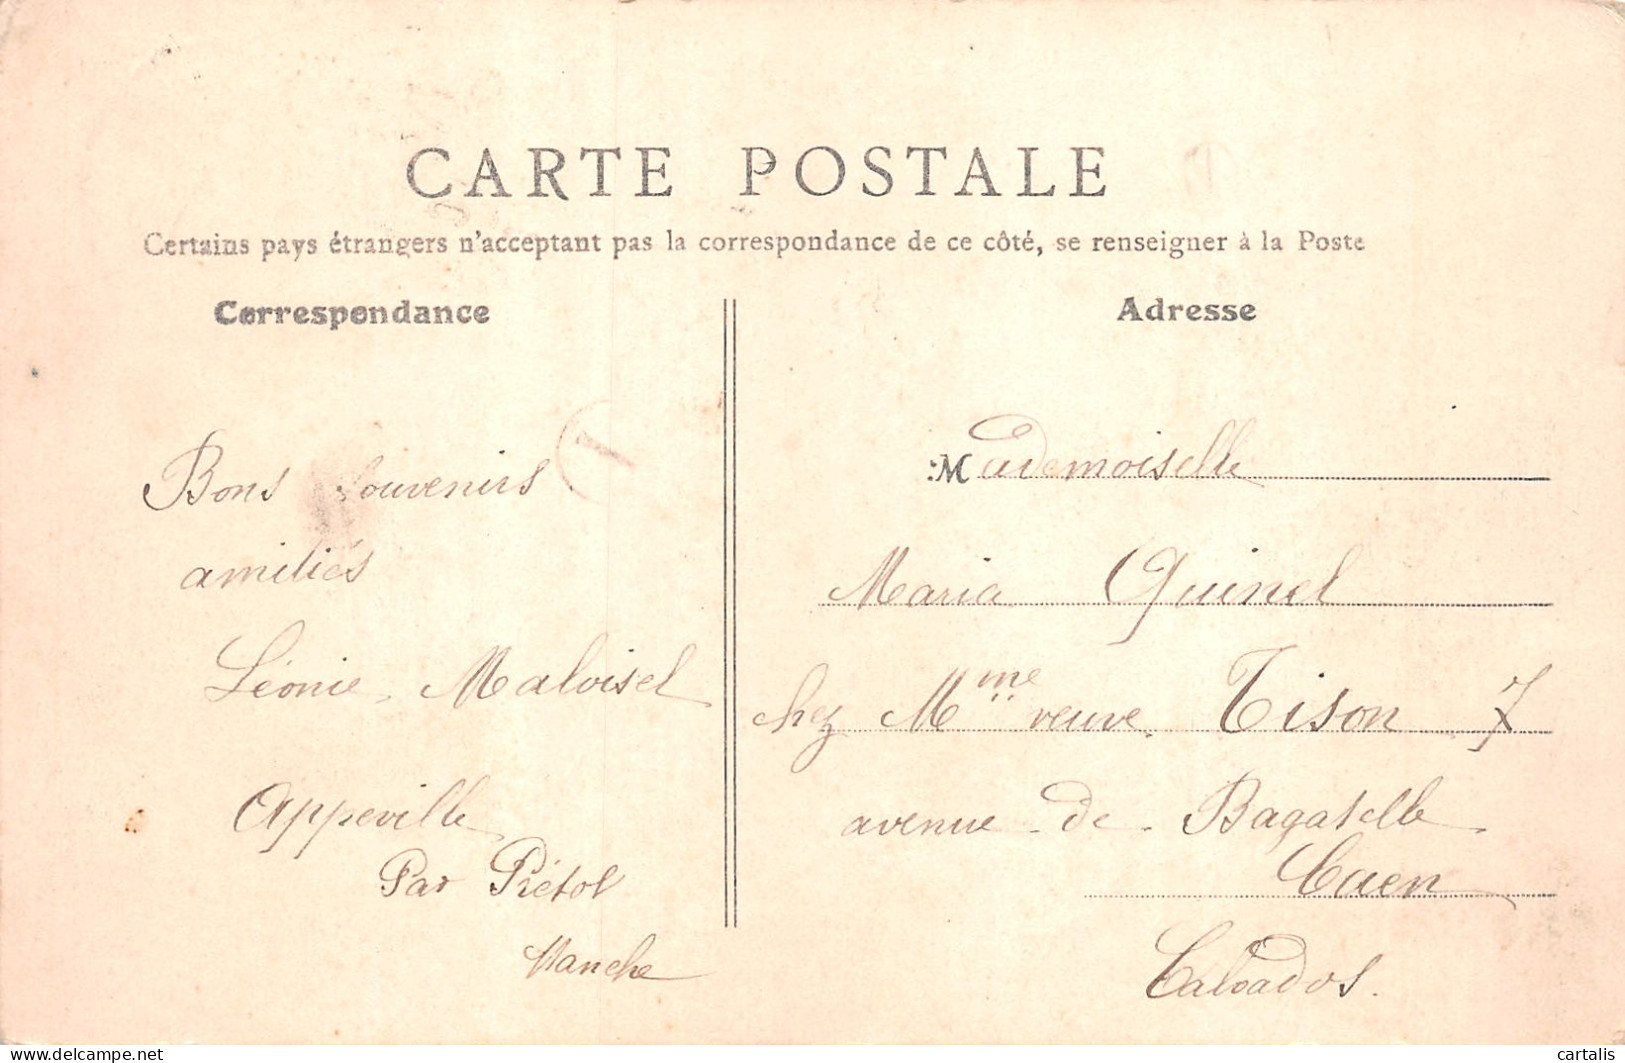 CARTE POSTALE
Certains pays étrangers n'acceptant pas la correspondance de ce côté, se renseigner à la Poste
Correspondance
Bons Souvenirs
amitiés
Léonie Maloisel
Appeville
Par Prétot
Manche
Adresse
Mademoiselle
Maria Quinel
chez Mme veuve Tison 7
avenue de Bagatelle
Caen
Calvados.
delcampe.net
cartalis